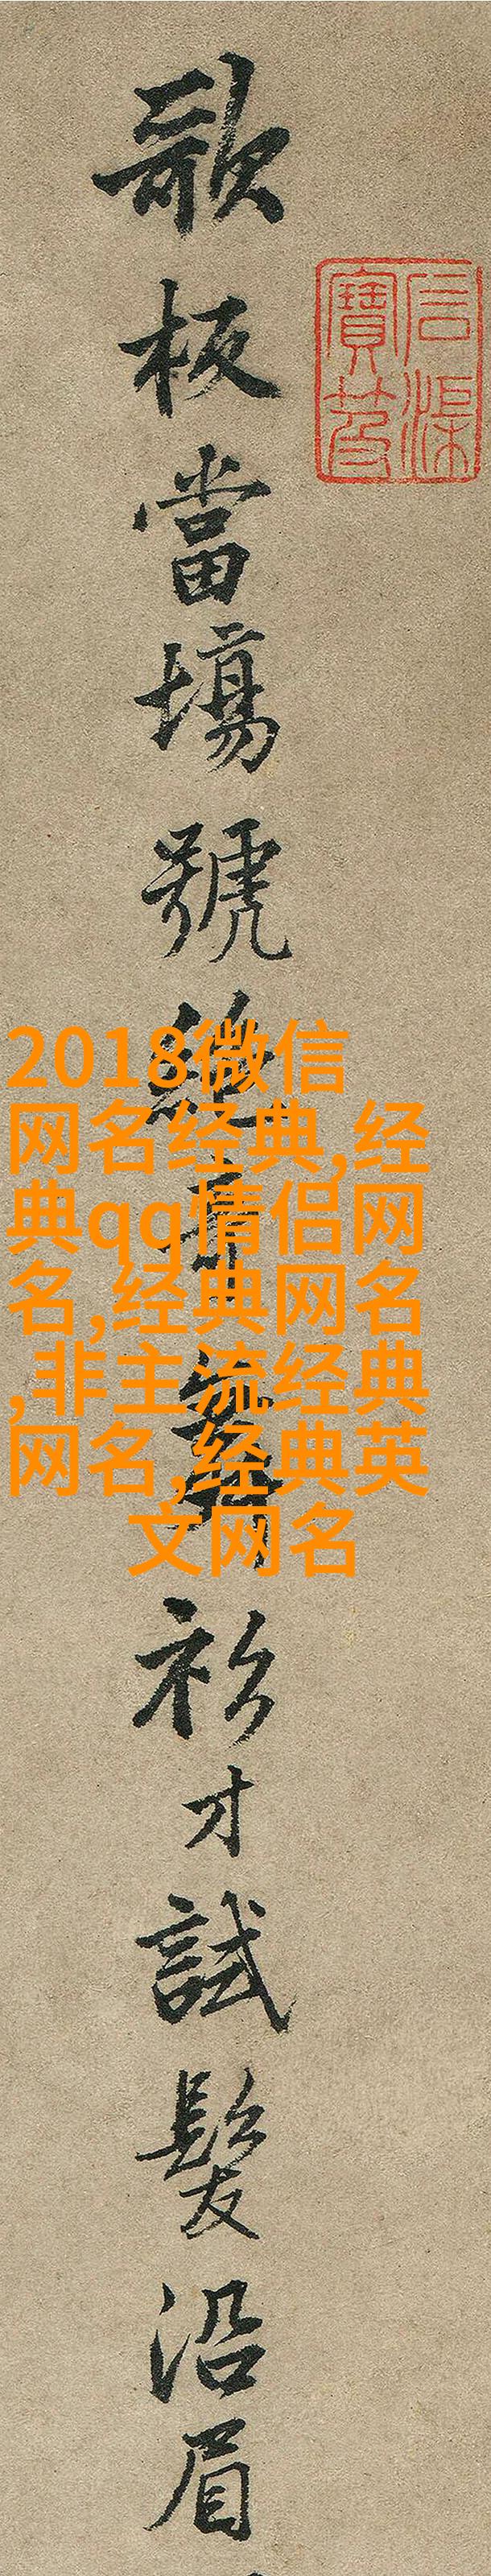 歌板當場號絕奇舞衫才試髮沿眉
石渠寶笈
2018微信
网名经典,经
典qq情侣网
名,经典网名
,非主流经典
网名,经典英
文网名